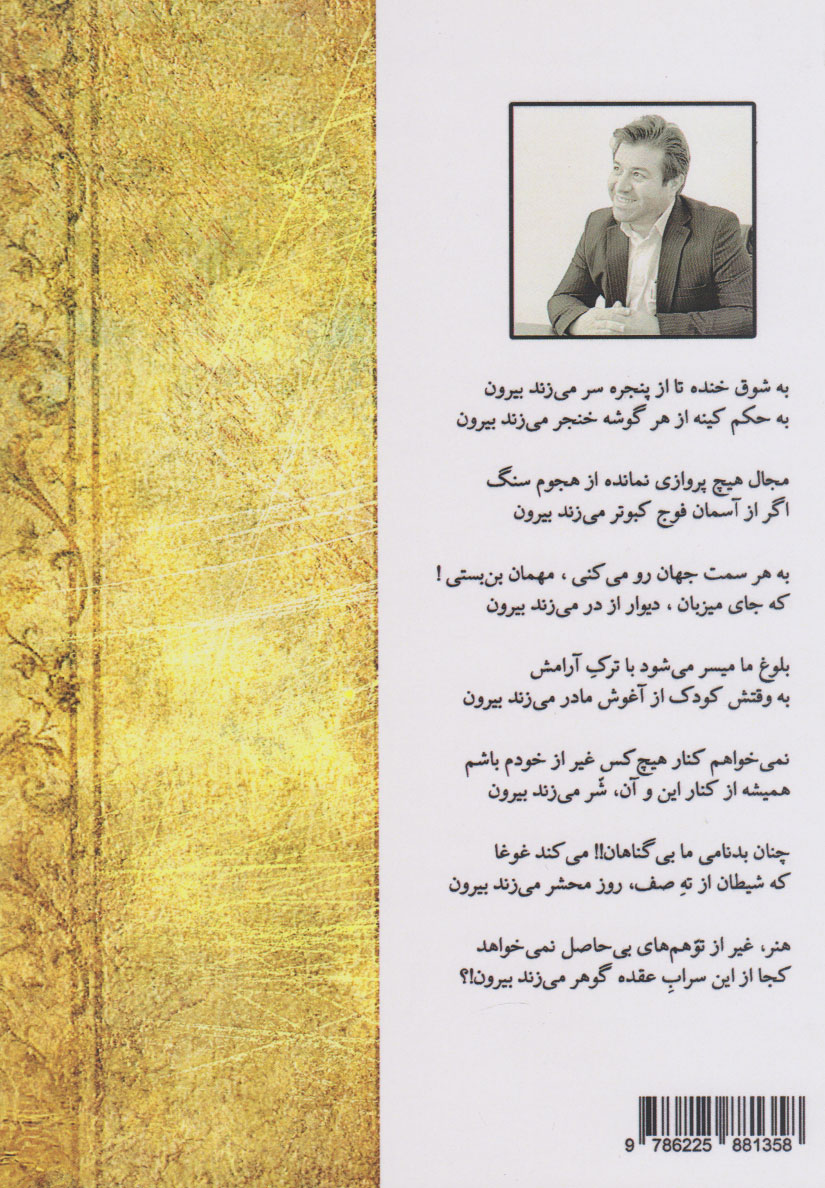 به شوق خنده تا از پنجره سر می‌زند بیرون
به حکم کینه از هر گوشه خنجر می‌زند بیرون
مجال هیچ پروازی نمانده از هجوم سنگ
اگر از آسمان فوج کبوتر می‌زند بیرون
به هر سمت جهان رو می‌کنی ، مهمان بن‌بستی !
که جای میزبان ، دیوار از در می‌زند بیرون
بلوغ ما میسر می‌شود با ترکِ آرامش
به وقتش کودک از آغوش مادر می‌زند بیرون
نمی‌خواهم کنار هیچ‌کس غیر از خودم باشم
همیشه از کنار این و آن، شّر می‌زند بیرون
چنان بدنامی ما بی‌گناهان!! می‌کند غوغا
که شیطان از تهِ صف، روز محشر می‌زند بیرون
هنر، غیر از توّهم‌های بی‌حاصل نمی‌خواهد
کجا از این سرابِ عقده گوهر می‌زند بیرون!؟
9 786225 881358